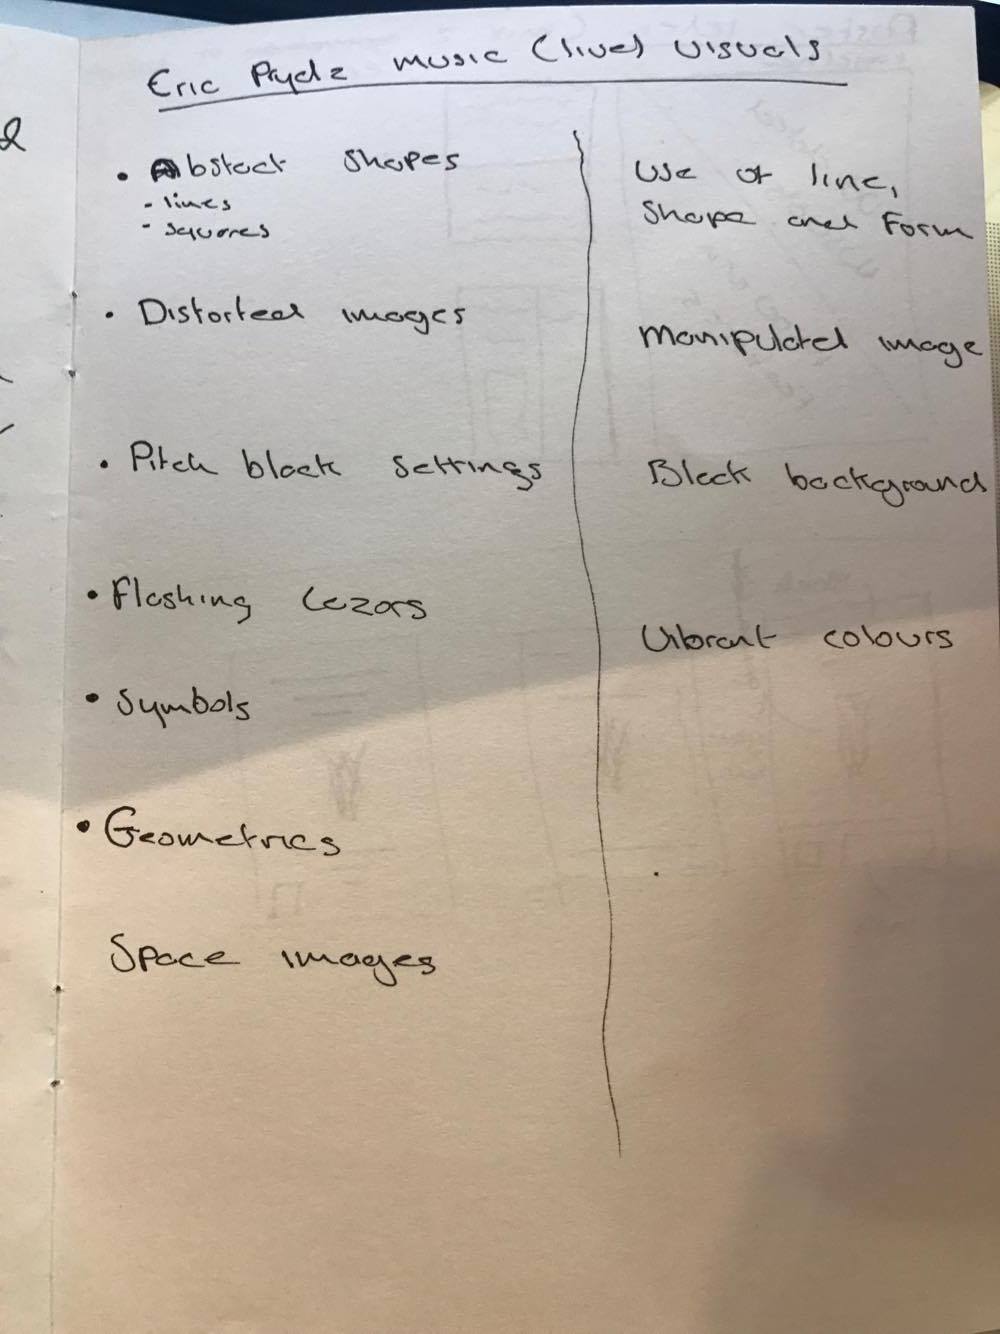 Eric Prydz music (live) visuals
• Abstact shapes
- lines
- squares
• Distorted images
• Pitch black settings
• Flashing Lezars
• Symbols
• Geometrics
Space images
Use of line,
Shape and Form
Manipulated image
Black background
Vibrant colours